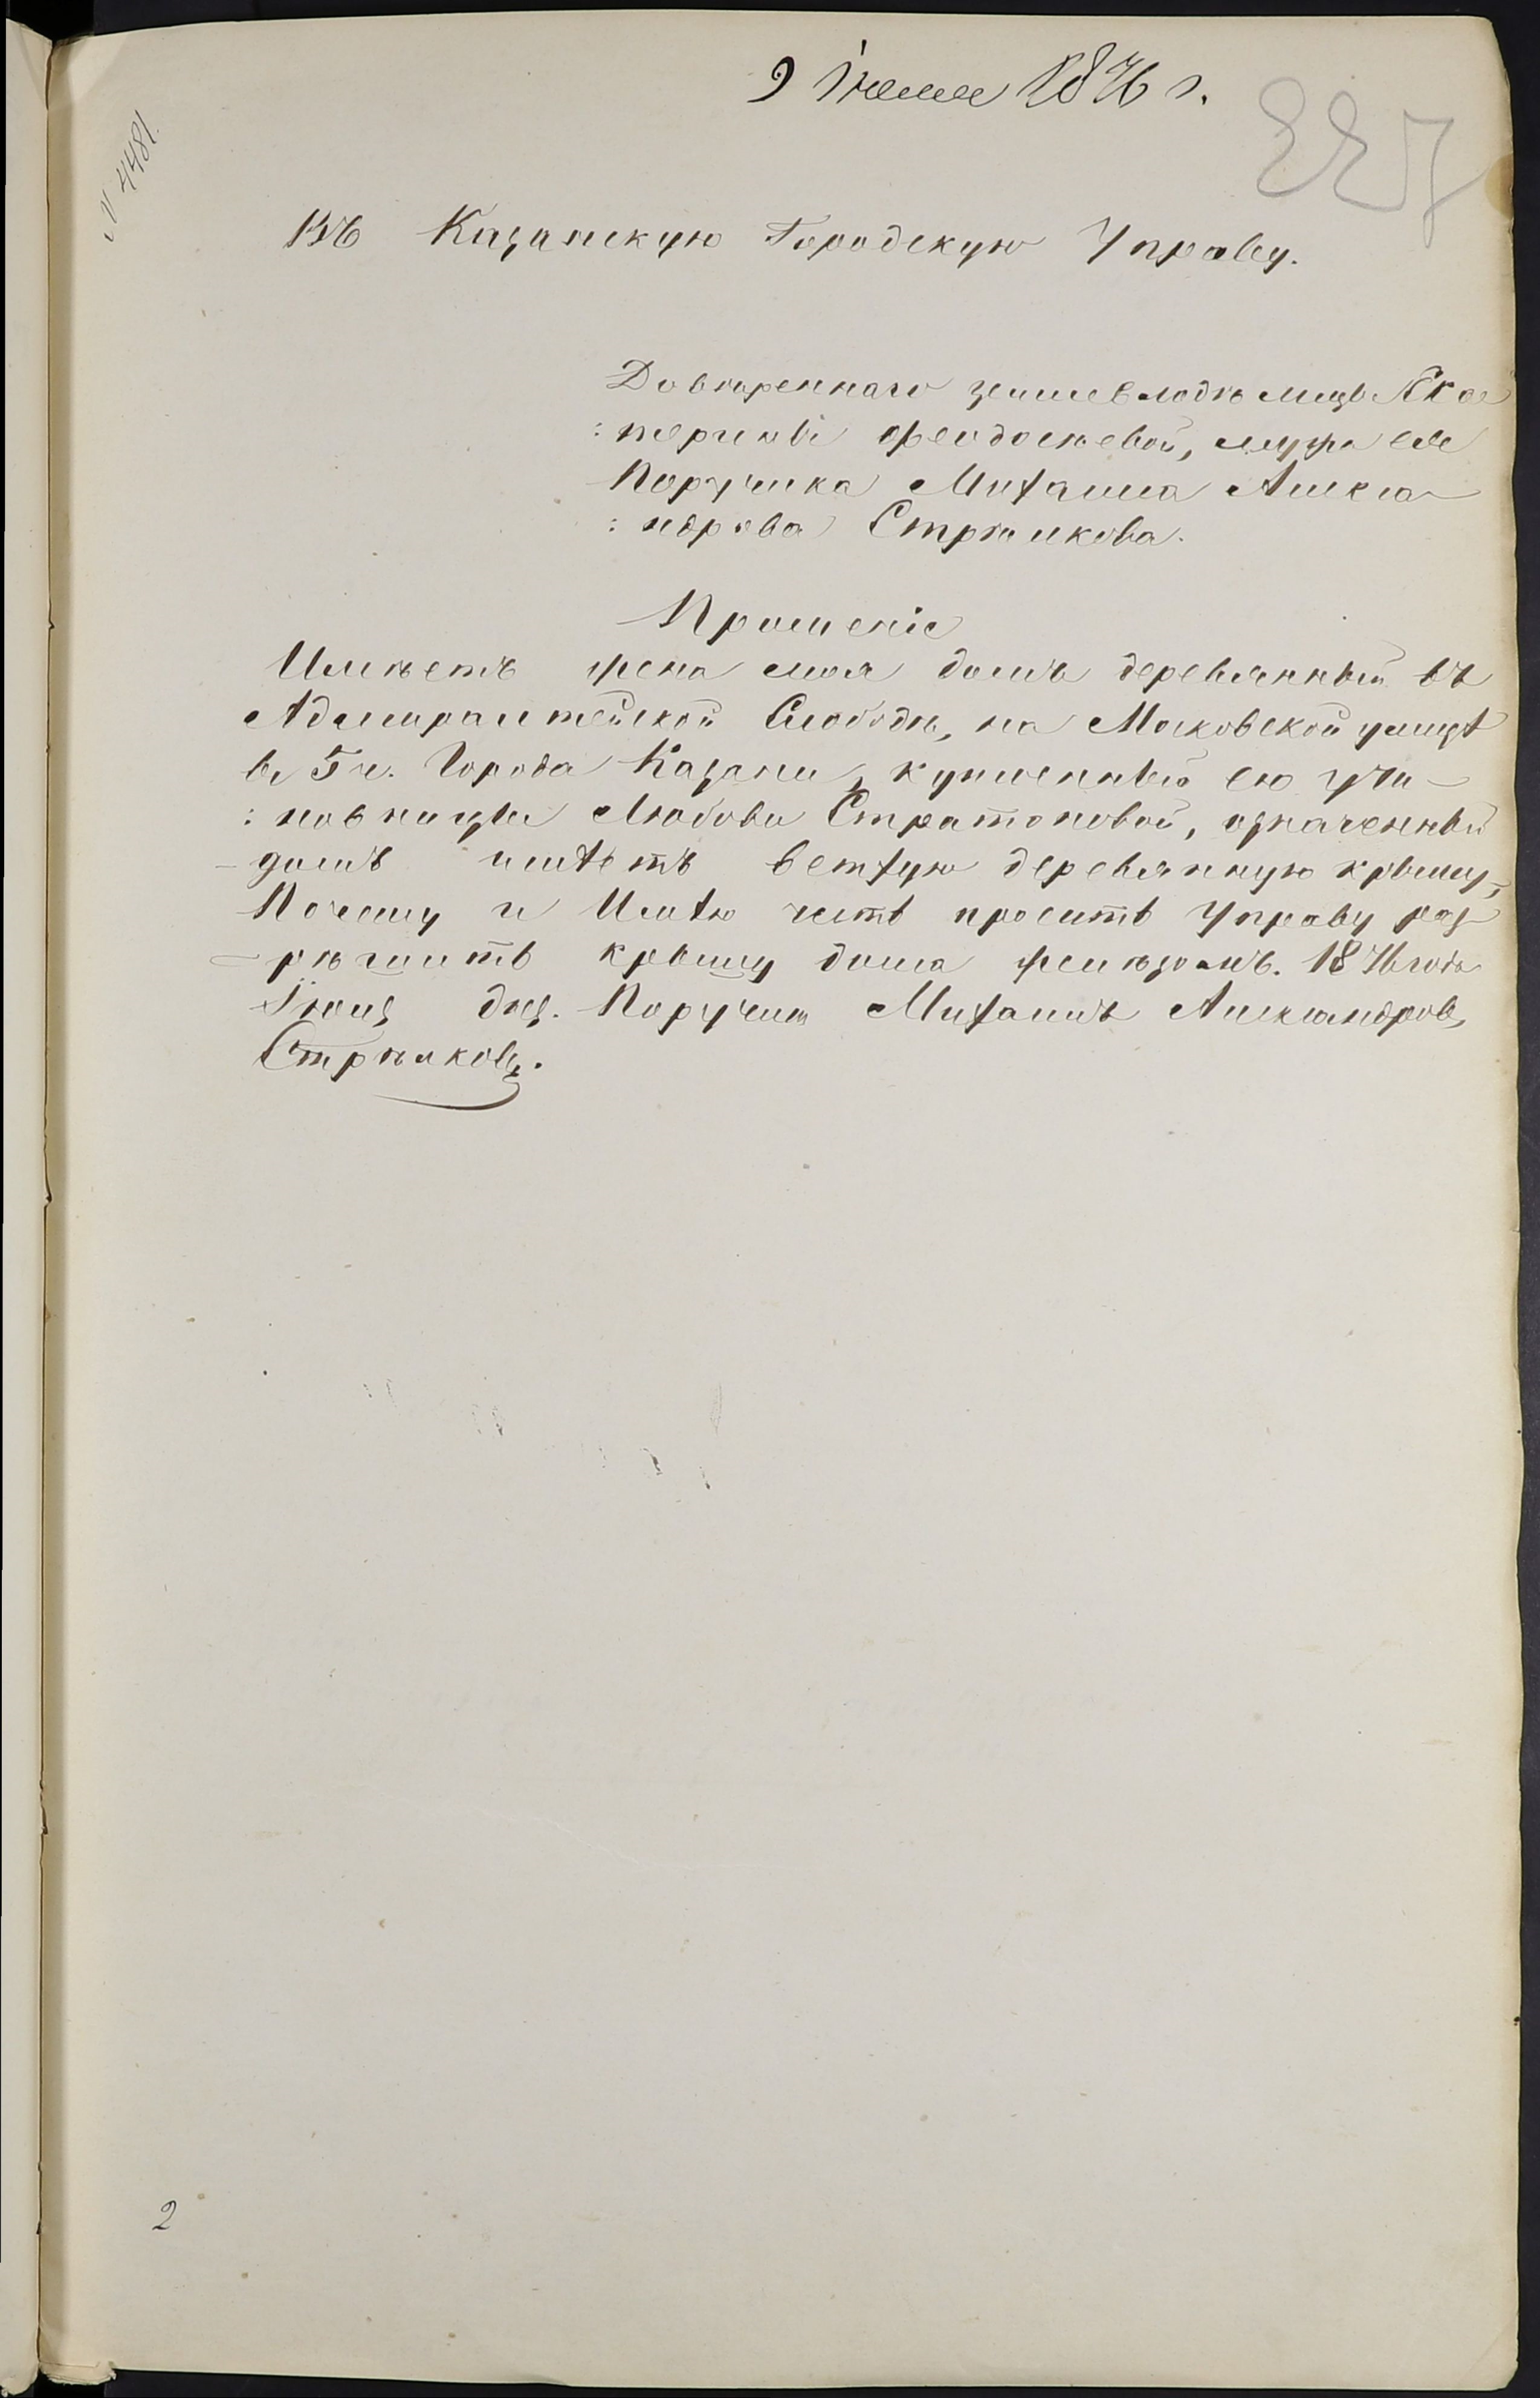 9 Іюня 1876 г.
227
№ 4481.
Въ Казанскую Городскую Управу.
Довѣреннаго землевладѣлицы Ека
:терины Феодосѣевой, мужа ея
Поручика Михаила Алекса-
:ндрова Стрѣлкова.
Прошеніе
Имѣетъ жена моя домъ деревянный въ
Адмиралтейской Слободѣ, на Московской улицѣ
въ 5 ч. Города Казани, купленный ею у чи-
:новницы Любови Стратоновой, означенный
домъ имѣетъ ветхую деревянную крышу,
Почему и Имѣю честь просить Управу раз-
-рѣшить крышу дома желѣзомъ. 1876 года
Іюня дня. Поручикъ Михаилъ Александровъ
Стрѣлковъ.
2